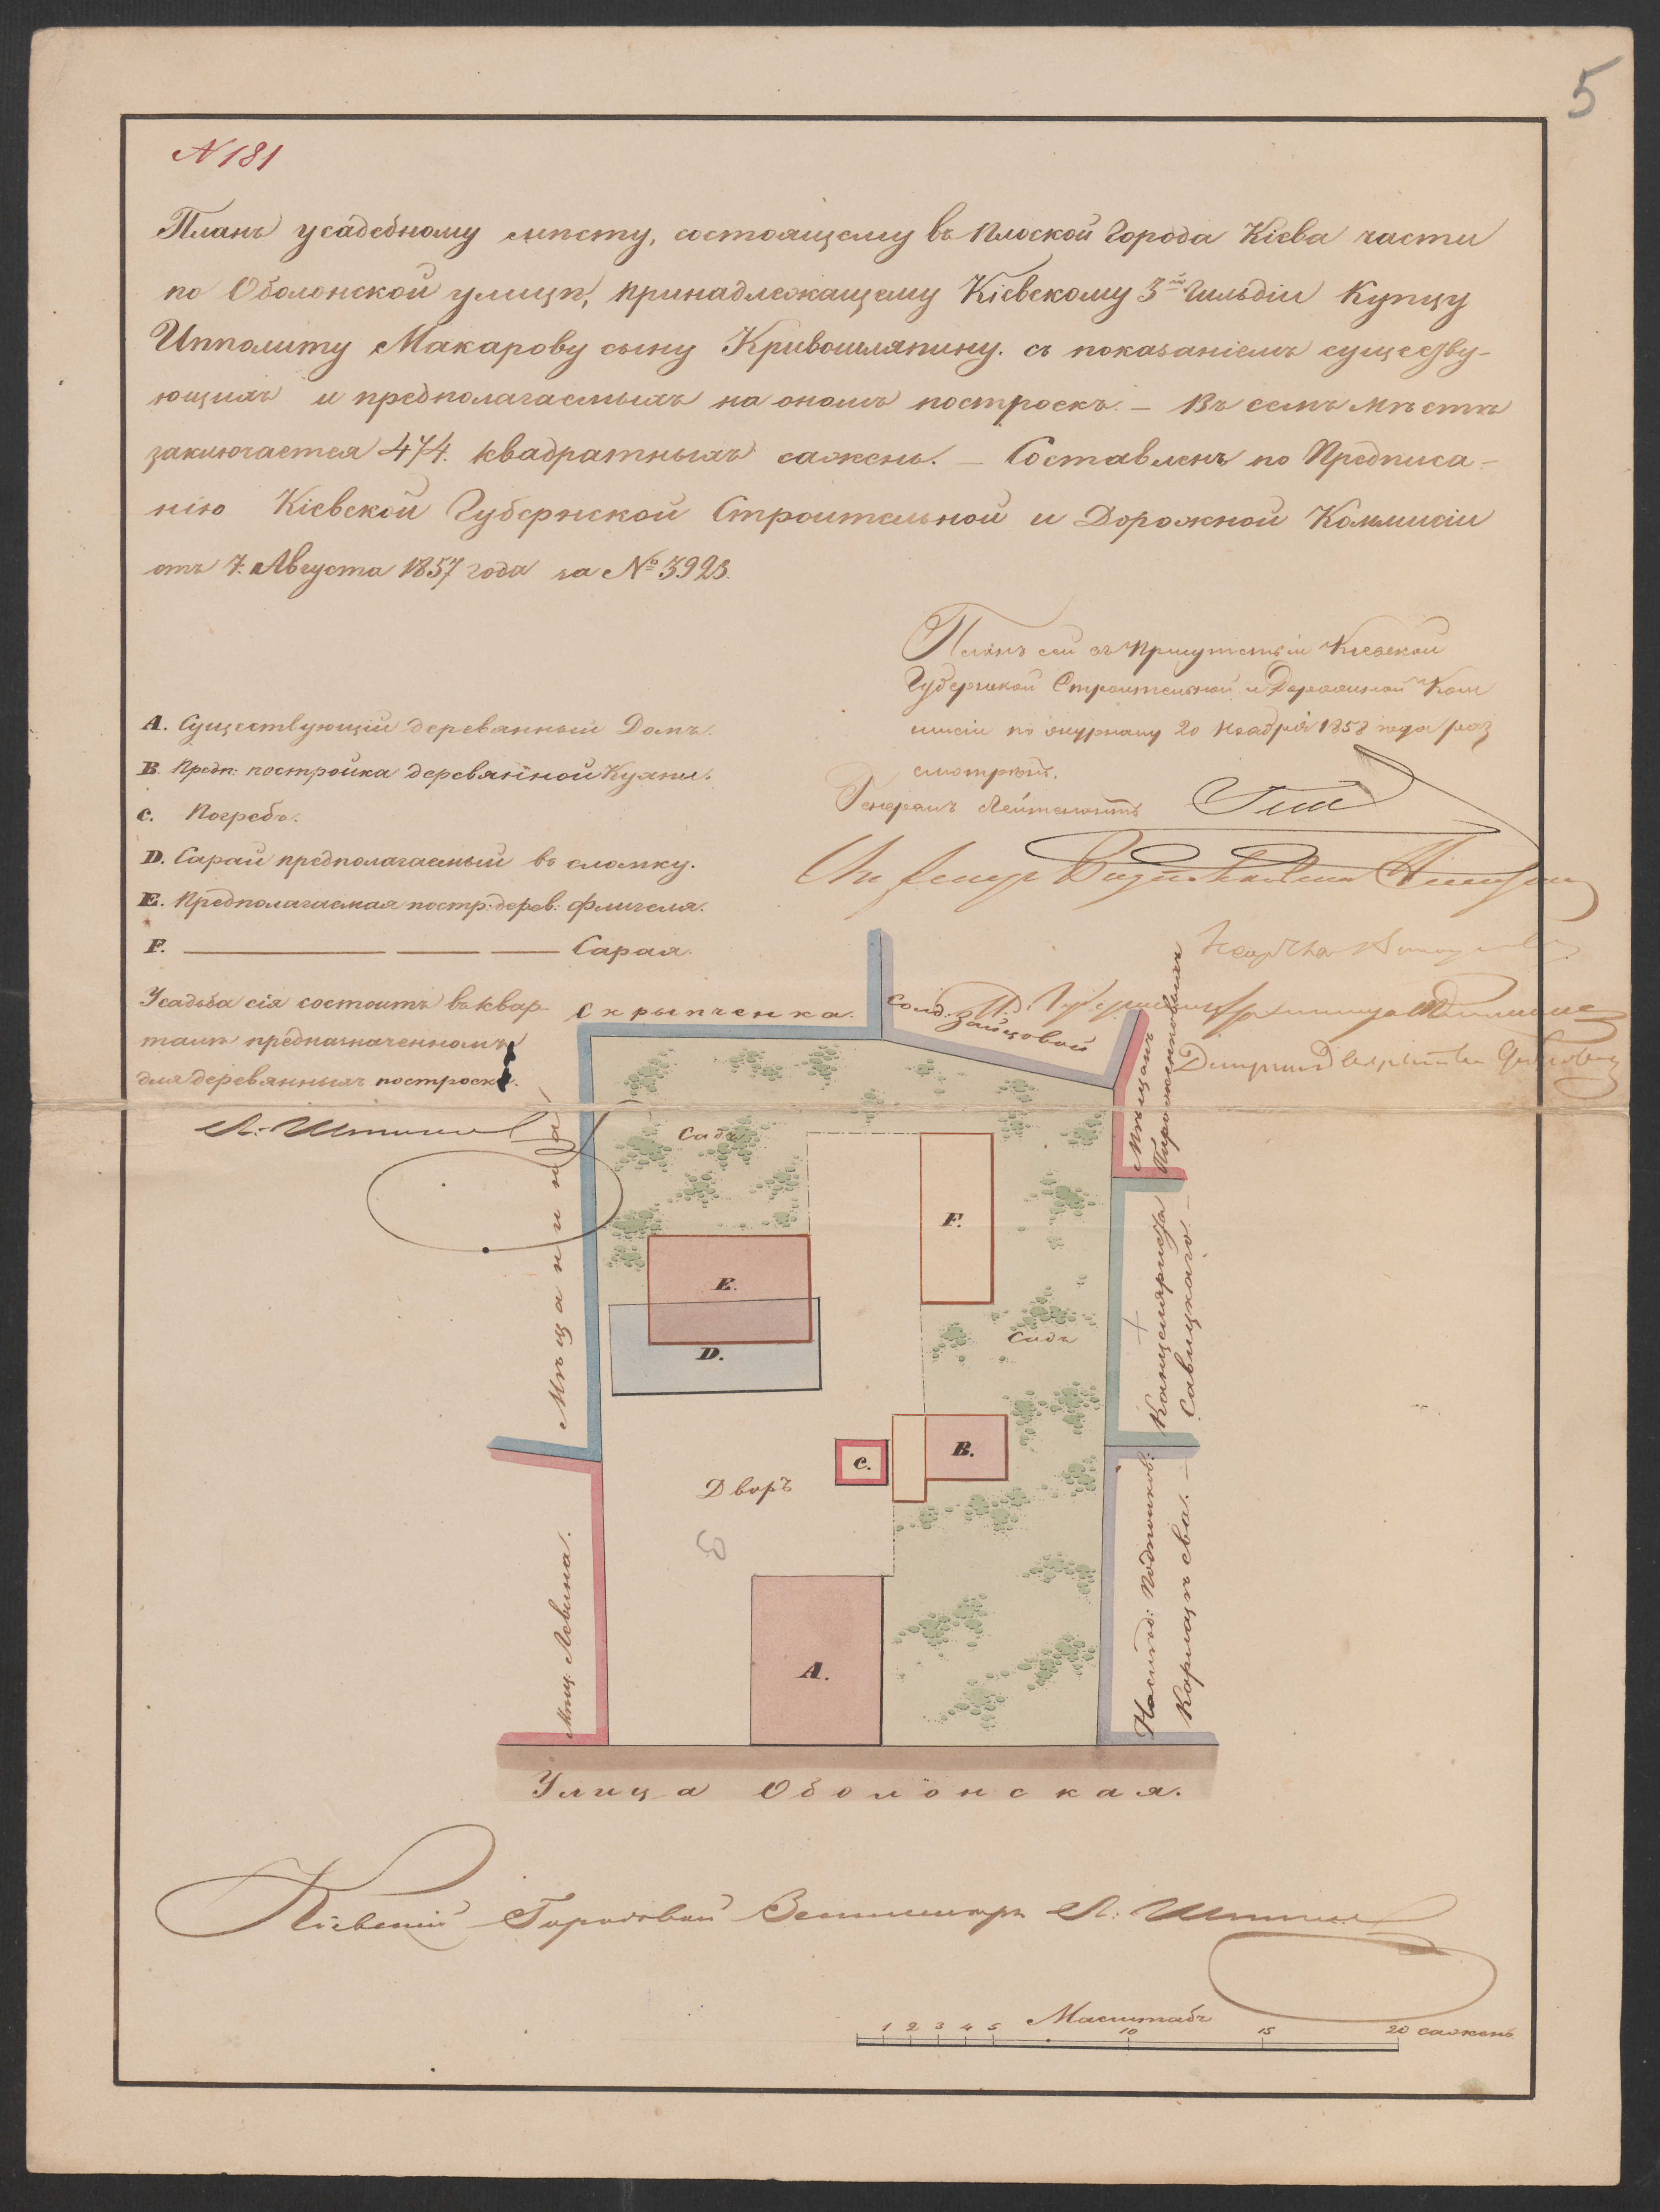 5
N 181
Планъ усадебному мѣсту, состоящему въ Плоской Города Кіева части
по Оболонской улицѣ, принадлежащему Кіевскому 3й Гильдіи Купцу
Ипполиту Макарову сыну Кривошляпину. съ показаніемъ существу-
ющихъ и предполагаемыхъ на ономъ построекъ. – Въ семъ мѣстѣ
заключается 474. квадратныхъ сажень. – Составленъ по Предписа-
нію Кіевской Губернской Строительной и Дорожной Коммисіи
отъ 7. Августа 1857 года за № 3923.
Планъ сей въ Присутствіи Кіевской
Губернской Строительной и Дорожной Ком
мисіи по журналу 20 Ноября 1858 года раз
смотрѣнъ.
Генералъ Лейтенантъ
A. Существующій деревянный Домъ.
B. Предп: постройка деревянной Кухни.
C. Погребъ.
D. Сарай предполагаемый въ сломку.
E. Предполагаемая постр: дерев: Флигеля.
F. Сарая.
Усадьба сія состоитъ въ квар-
талѣ предназначенномъ
для деревянныхъ построекъ.
Скрыпченка.
Солд: Зайцовой
Мѣщанъ
Мѣщанина
Мѣщ: Левина.
Канцеляриста
Савицкаго.
Наслѣд: Полковник:
Садъ
Садъ
F.
E.
D.
B.
C.
Дворъ
A.
Улица Оболонская.
Кіевскій Городовой Землемѣръ
Масштабъ
1 2 3 4 5 10 15 20 сажень